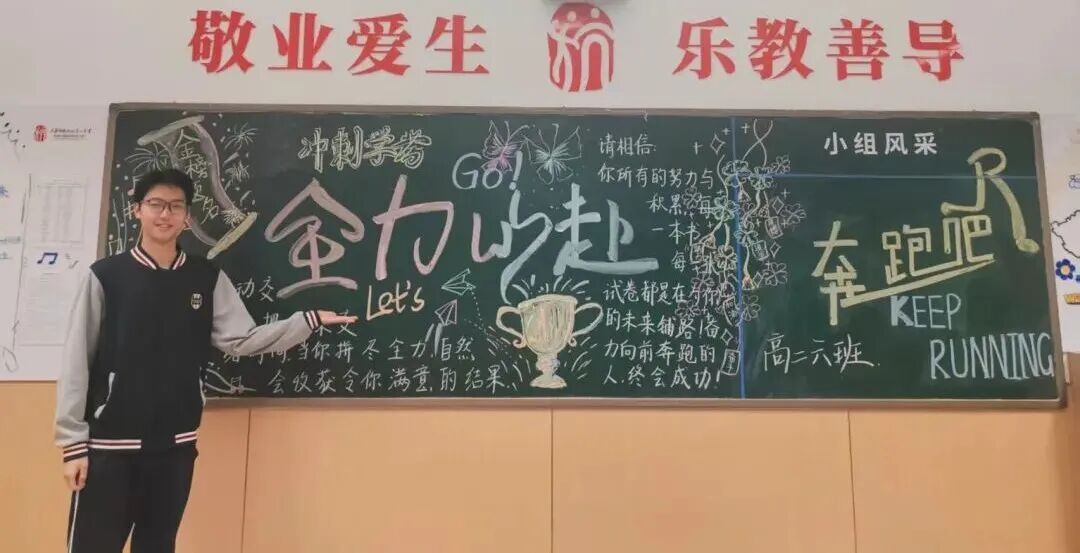 敬业爱生
乐教善导
金榜
名
冲刺学考
Go!
全力以赴
Let's
动交
当你拼尽全力,自然
会收获令你满意的结果
请相信:
你所有的努力与
秋累,每
一本书
每
试卷都是在为你
的未来铺路!奋
力向前奔跑的
人,终会成功!
小组风采
奔跑吧
R
KEEP
RUNNING
高二六班